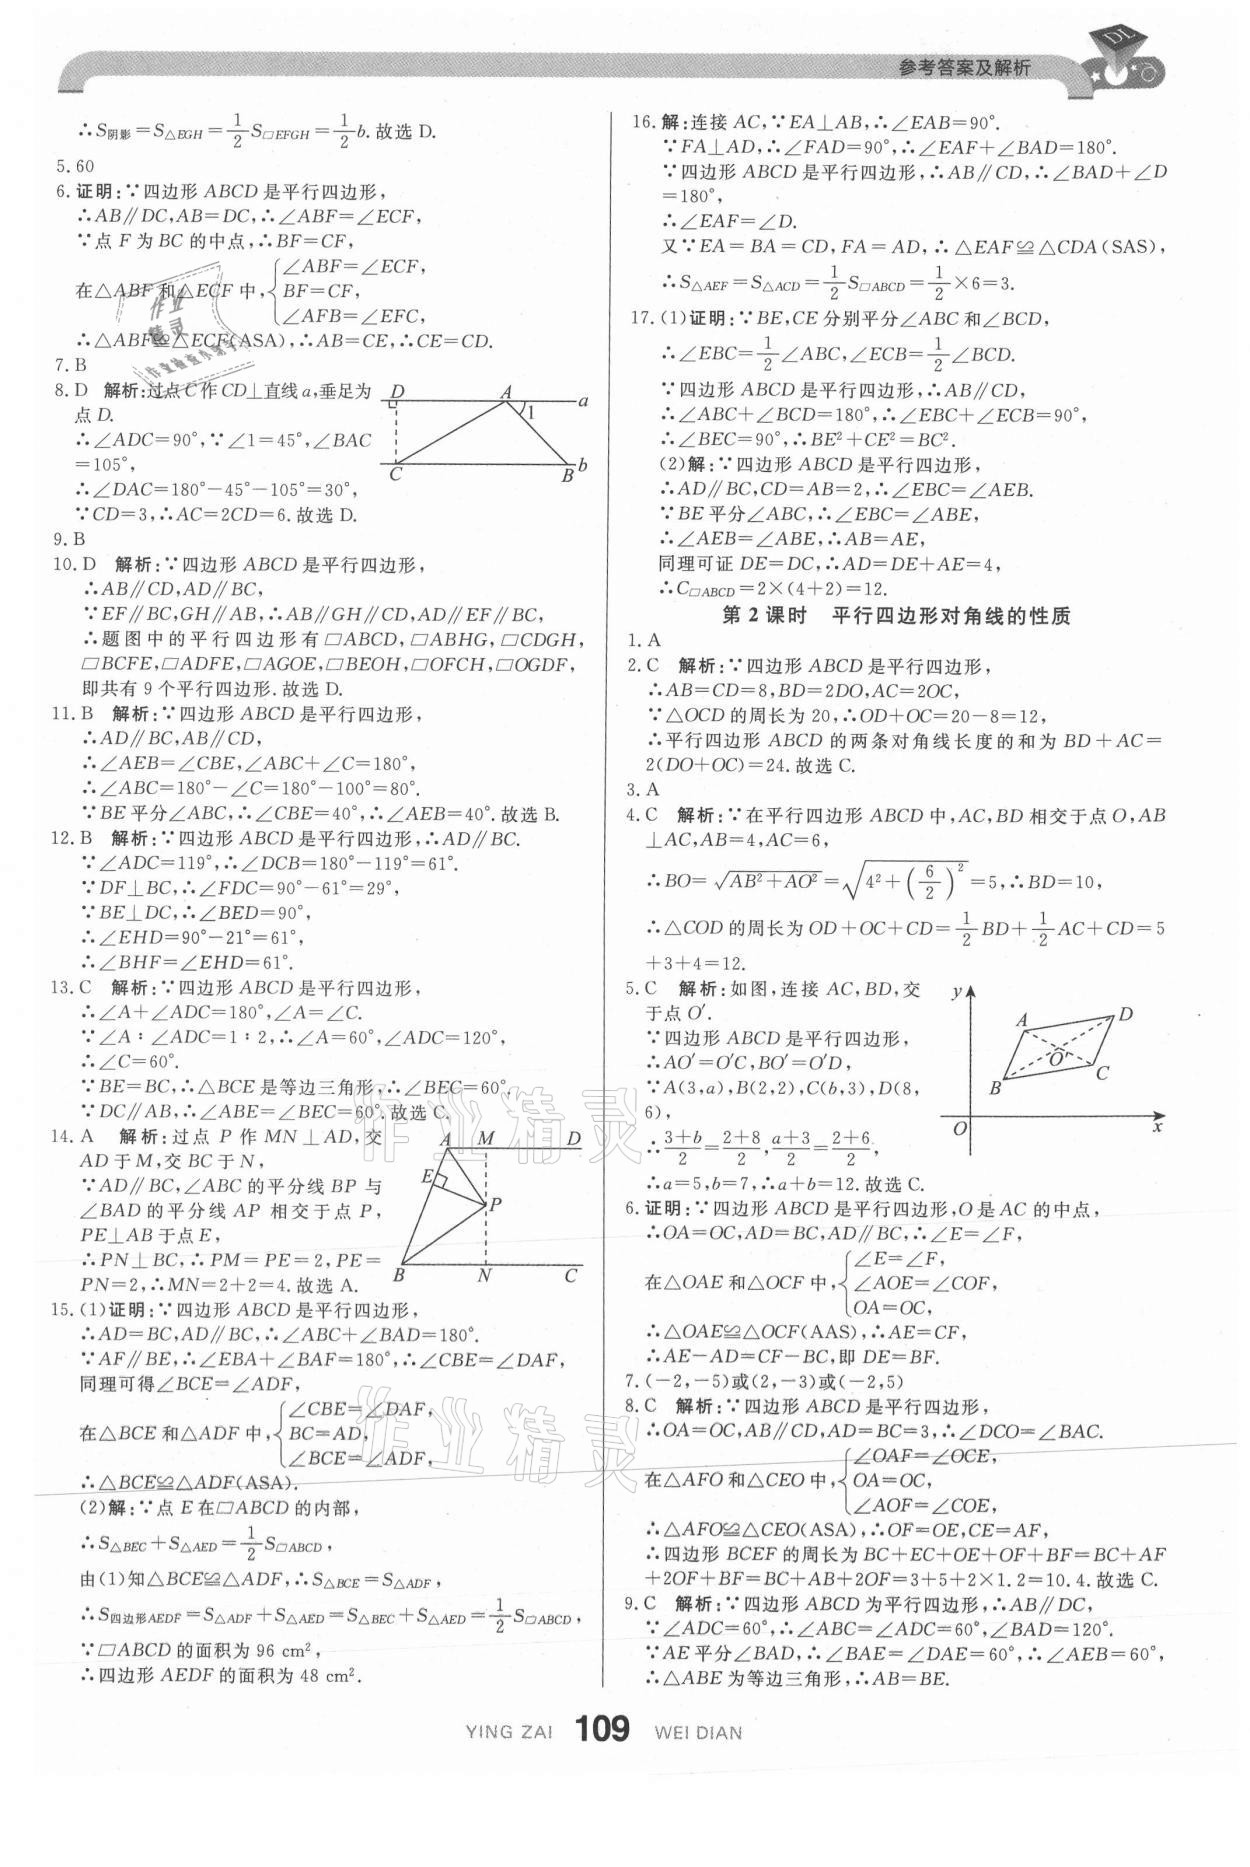 参考答案及解析
DL
∴S阴影=S△EGH=1/2 S▱EFGH=1/2 b.故选 D.
5.60
6.证明:∵四边形 ABCD 是平行四边形,
∴AB∥DC,AB=DC,∴∠ABF=∠ECF,
∵点 F 为 BC 的中点,∴BF=CF,
在△ABF 和△ECF 中,{∠ABF=∠ECF,
BF=CF,
∠AFB=∠EFC,
∴△ABF≌△ECF(ASA),∴AB=CE,∴CE=CD.
7.B
8.D 解析:过点 C 作 CD⊥直线 a,垂足为
点 D.
∴∠ADC=90°,∵∠1=45°,∠BAC
=105°,
∴∠DAC=180°-45°-105°=30°,
∵CD=3,∴AC=2CD=6.故选 D.
D A a
1
C B b
9.B
10.D 解析:∵四边形 ABCD 是平行四边形,
∴AB∥CD,AD∥BC,
∵EF∥BC,GH∥AB,∴AB∥GH∥CD,AD∥EF∥BC,
∴题图中的平行四边形有▱ABCD,▱ABHG,▱CDGH,
▱BCFE,▱ADFE,▱AGOE,▱BEOH,▱OFCH,▱OGDF,
即共有 9 个平行四边形.故选 D.
11.B 解析:∵四边形 ABCD 是平行四边形,
∴AD∥BC,AB∥CD,
∴∠AEB=∠CBE,∠ABC+∠C=180°,
∴∠ABC=180°-∠C=180°-100°=80°.
∵BE 平分∠ABC,∴∠CBE=40°,∴∠AEB=40°.故选 B.
12.B 解析:∵四边形 ABCD 是平行四边形,∴AD∥BC.
∵∠ADC=119°,∴∠DCB=180°-119°=61°.
∵DF⊥BC,∴∠FDC=90°-61°=29°,
∵BE⊥DC,∴∠BED=90°,
∴∠EHD=90°-21°=61°,
∴∠BHF=∠EHD=61°.
13.C 解析:∵四边形 ABCD 是平行四边形,
∴∠A+∠ADC=180°,∠A=∠C.
∵∠A∶∠ADC=1∶2,∴∠A=60°,∠ADC=120°,
∴∠C=60°.
∵BE=BC,∴△BCE 是等边三角形,∴∠BEC=60°,
∵DC∥AB,∴∠ABE=∠BEC=60°.故选 C.
14.A 解析:过点 P 作 MN⊥AD,交
AD 于 M,交 BC 于 N,
∵AD∥BC,∠ABC 的平分线 BP 与
∠BAD 的平分线 AP 相交于点 P,
PE⊥AB 于点 E,
∴PN⊥BC,∴PM=PE=2,PE=
PN=2,∴MN=2+2=4.故选 A.
A M D
E
P
B N C
15.(1)证明:∵四边形 ABCD 是平行四边形,
∴AD=BC,AD∥BC,∴∠ABC+∠BAD=180°.
∵AF∥BE,∴∠EBA+∠BAF=180°,∴∠CBE=∠DAF,
同理可得∠BCE=∠ADF,
在△BCE 和△ADF 中,{∠CBE=∠DAF,
BC=AD,
∠BCE=∠ADF,
∴△BCE≌△ADF(ASA).
(2)解:∵点 E 在▱ABCD 的内部,
∴S△BEC+S△AED=1/2 S▱ABCD,
由(1)知△BCE≌△ADF,∴S△BCE=S△ADF,
∴S四边形AEDF=S△ADF+S△AED=S△BEC+S△AED=1/2 S▱ABCD,
∵▱ABCD 的面积为 96 cm²,
∴四边形 AEDF 的面积为 48 cm².
16.解:连接 AC,∵EA⊥AB,∴∠EAB=90°.
∵FA⊥AD,∴∠FAD=90°,∴∠EAF+∠BAD=180°.
∵四边形 ABCD 是平行四边形,∴AB∥CD,∴∠BAD+∠D
=180°,
∴∠EAF=∠D.
又∵EA=BA=CD,FA=AD,∴△EAF≌△CDA(SAS),
∴S△AEF=S△ACD=1/2 S▱ABCD=1/2×6=3.
17.(1)证明:∵BE,CE 分别平分∠ABC 和∠BCD,
∴∠EBC=1/2∠ABC,∠ECB=1/2∠BCD.
∵四边形 ABCD 是平行四边形,∴AB∥CD,
∴∠ABC+∠BCD=180°,∴∠EBC+∠ECB=90°,
∴∠BEC=90°,∴BE²+CE²=BC².
(2)解:∵四边形 ABCD 是平行四边形,
∴AD∥BC,CD=AB=2,∴∠EBC=∠AEB.
∵BE 平分∠ABC,∴∠EBC=∠ABE,
∴∠AEB=∠ABE,∴AB=AE,
同理可证 DE=DC,∴AD=DE+AE=4,
∴C▱ABCD=2×(4+2)=12.
第 2 课时 平行四边形对角线的性质
1.A
2.C 解析:∵四边形 ABCD 是平行四边形,
∴AB=CD=8,BD=2DO,AC=2OC,
∵△OCD 的周长为 20,∴OD+OC=20-8=12,
∴平行四边形 ABCD 的两条对角线长度的和为 BD+AC=
2(DO+OC)=24.故选 C.
3.A
4.C 解析:∵在平行四边形 ABCD 中,AC,BD 相交于点 O,AB
⊥AC,AB=4,AC=6,
∴BO=√(AB²+AO²)=√(4²+(6/2)²)=5,∴BD=10,
∴△COD 的周长为 OD+OC+CD=1/2 BD+1/2 AC+CD=5
+3+4=12.
5.C 解析:如图,连接 AC,BD,交
于点 O′.
∵四边形 ABCD 是平行四边形,
∴AO′=O′C,BO′=O′D,
∵A(3,a),B(2,2),C(b,3),D(8,
6),
∴(3+b)/2=(2+8)/2,(a+3)/2=(2+6)/2,
∴a=5,b=7,∴a+b=12.故选 C.
y
A D
O′
B C
O x
6.证明:∵四边形 ABCD 是平行四边形,O 是 AC 的中点,
∴OA=OC,AD=BC,AD∥BC,∴∠E=∠F,
在△OAE 和△OCF 中,{∠E=∠F,
∠AOE=∠COF,
OA=OC,
∴△OAE≌△OCF(AAS),∴AE=CF,
∴AE-AD=CF-BC,即 DE=BF.
7.(-2,-5)或(2,-3)或(-2,5)
8.C 解析:∵四边形 ABCD 是平行四边形,
∴OA=OC,AB∥CD,AD=BC=3,∴∠DCO=∠BAC.
在△AFO 和△CEO 中,{∠OAF=∠OCE,
OA=OC,
∠AOF=∠COE,
∴△AFO≌△CEO(ASA),∴OF=OE,CE=AF,
∴四边形 BCEF 的周长为 BC+EC+OE+OF+BF=BC+AF
+2OF+BF=BC+AB+2OF=3+5+2×1.2=10.4.故选 C.
9.C 解析:∵四边形 ABCD 为平行四边形,∴AB∥DC,
∵∠ADC=60°,∴∠ABC=∠ADC=60°,∠BAD=120°.
∵AE 平分∠BAD,∴∠BAE=∠DAE=60°,∴∠AEB=60°,
∴△ABE 为等边三角形,∴AB=BE.
YING ZAI 109 WEI DIAN
作业精灵
作业精灵
作业
精灵